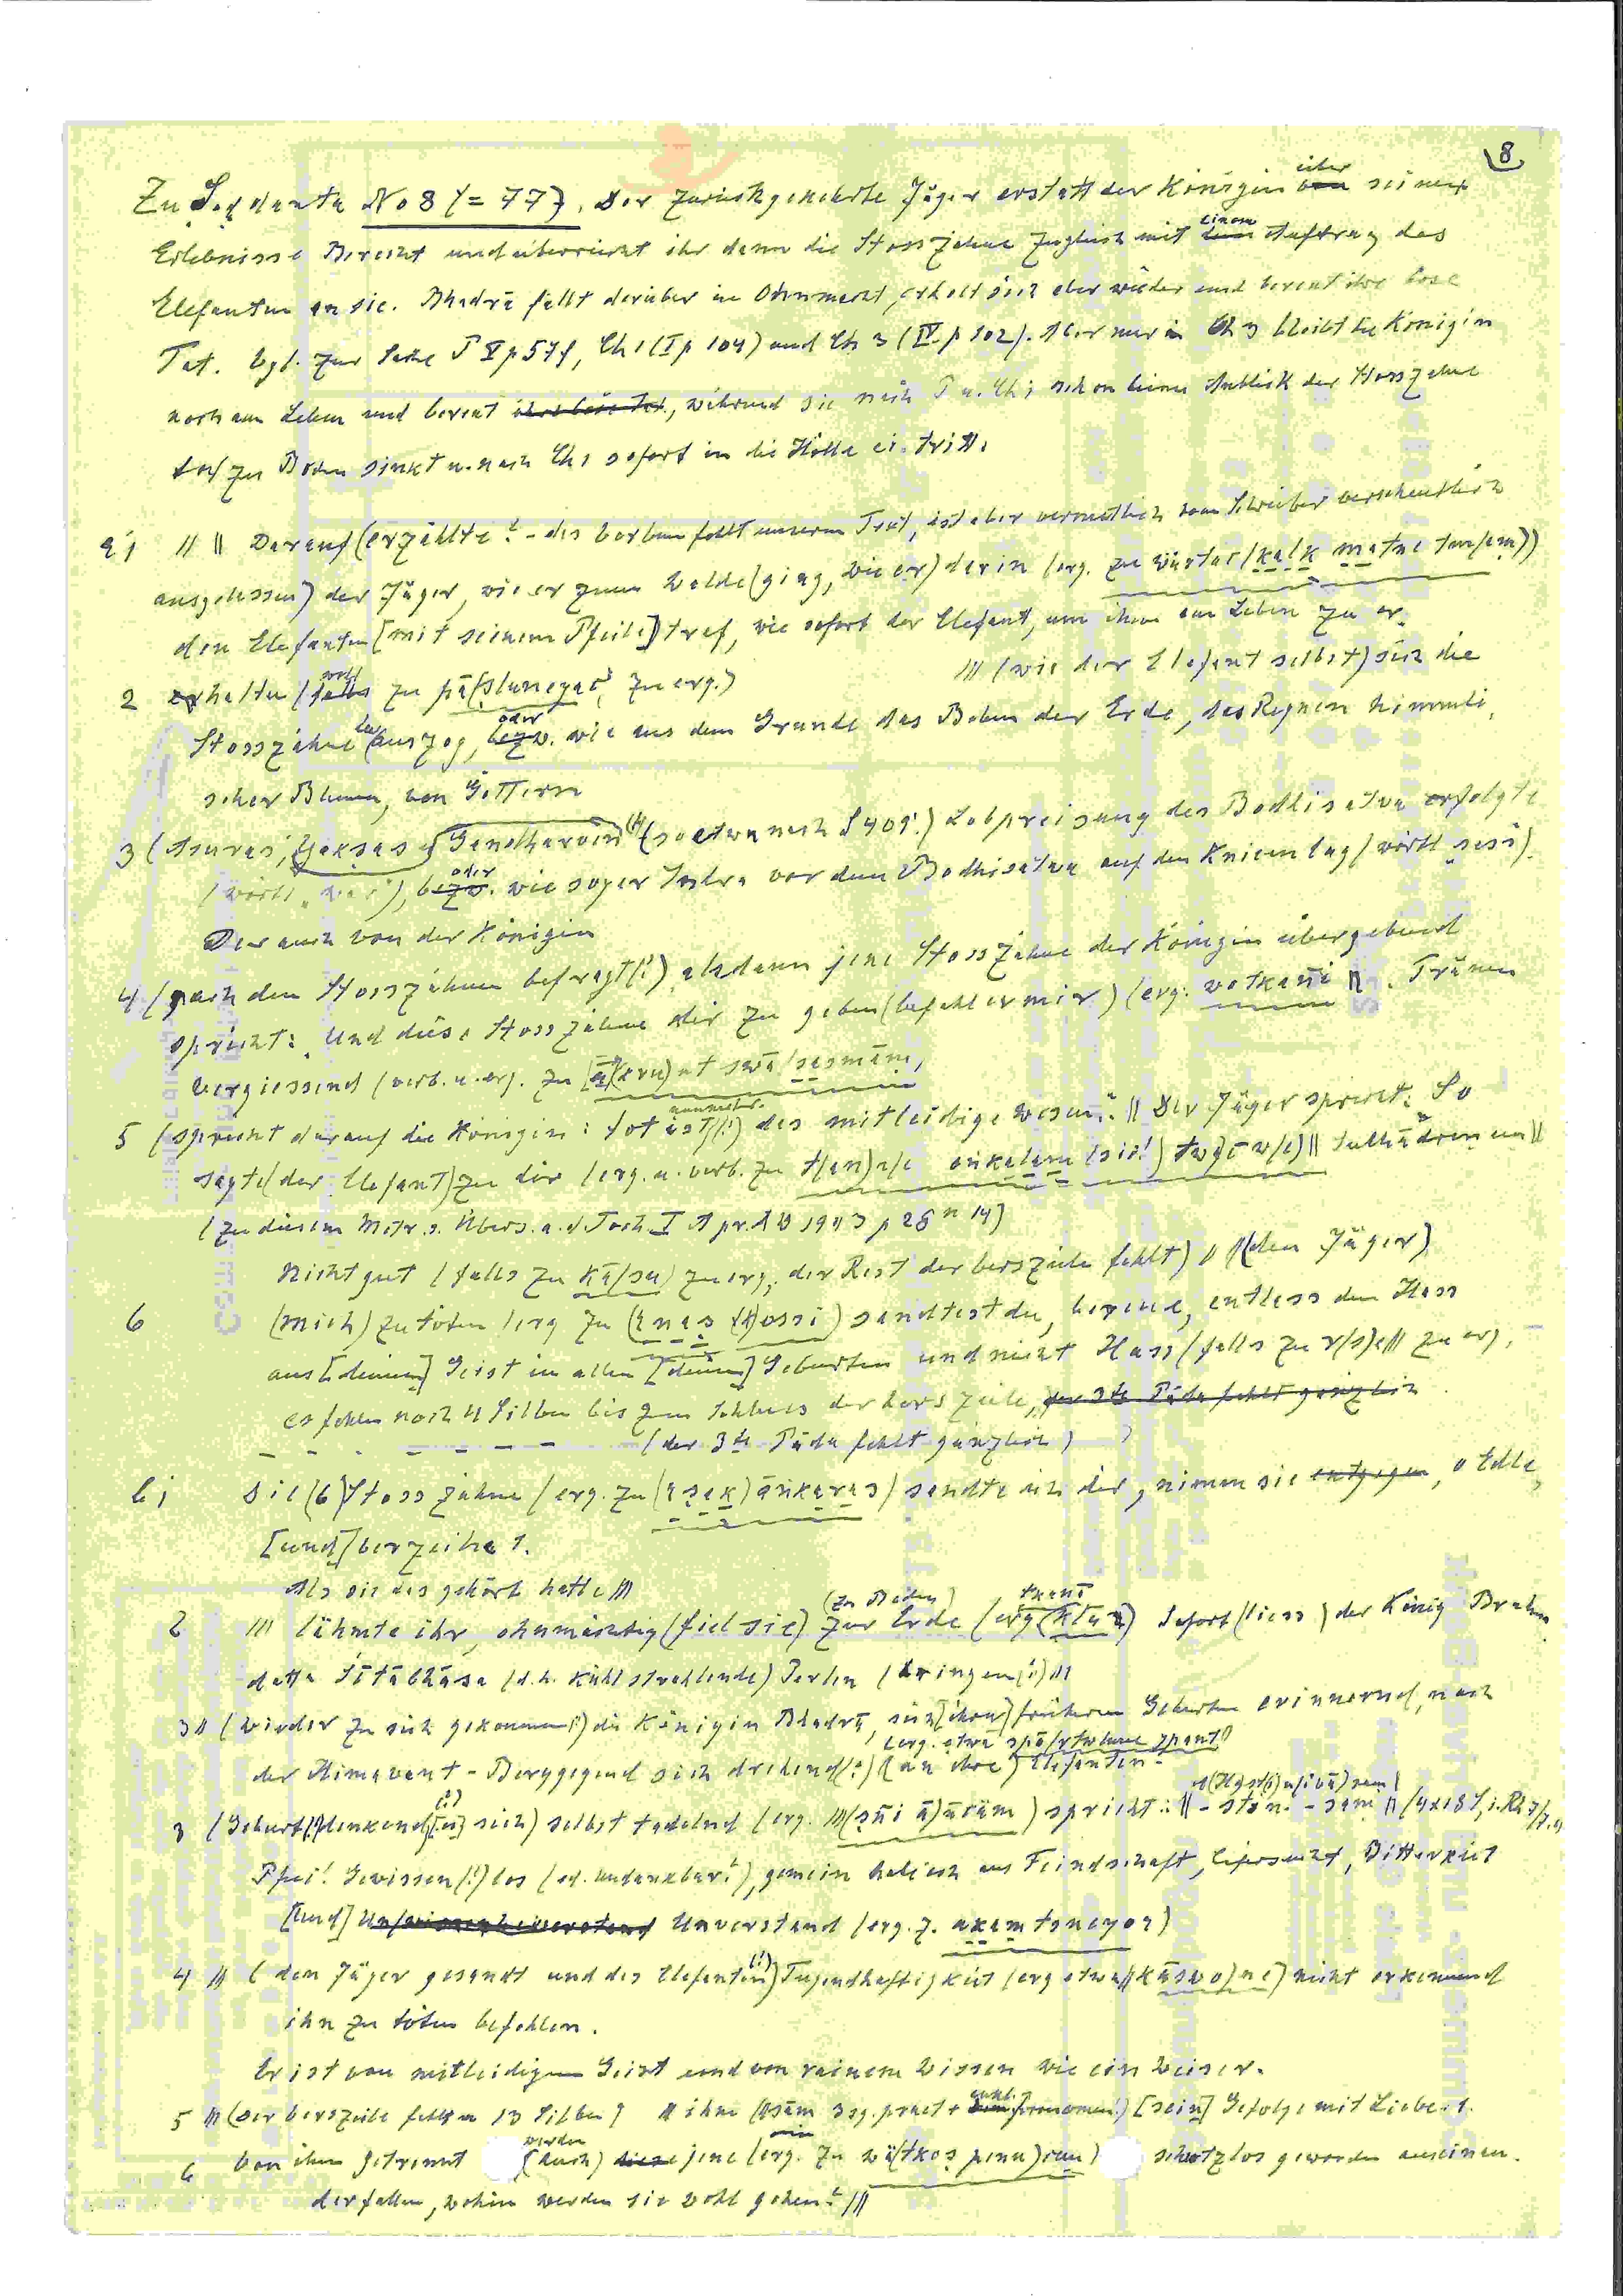 8
Zu Ṣaḍdanta No 8 (= 77). Der zurückgekehrte Jäger erstatt der Königin über seine
Erlebnisse Bericht und überreicht ihr dann die Stosszähne zugleich mit einem Auftrag des
Elefanten an sie. Bhadrā fällt darüber in Ohnmacht, erholt sich aber wieder und bereut ihre böse
Tat. Vgl. zur Sache P V p 57f, Ch 1 (I p 104) und Ch 3 (IV p 102). Aber nur in Ch 3 bleibt die Königin
noch am Leben und bereut, während sie nach P u. Ch 1 schon beim Anblick der Stosszähne
tot zu Boden sinkt u. nach Ch 1 sofort in die Hölle eintritt.
a 1 /// || Darauf (erzählte? - das Verbum fehlt unserem Text, ist aber vermutlich vom Schreiber versehentlich
ausgelassen) der Jäger, wie er zum Walde (ging, wie er) darin (erg. zu wärtac/ kalk matne
den Elefanten [mit seinem Pfeile] traf, wie sofort der Elefant, um ihm am Leben zu er-
2 erhalten (wohl zu zu erg.) /// (wie der Elefant selbst) sich die
Stosszähne auszog, oder wie aus dem Grunde das Beben der Erde, das Regnen himmli-
scher Blumen, von Göttern
3 (Asuras, Yakṣas Gandharven (so etwa nach S 409?) Lobpreisung des Bodhisatva erfolgte
(wörtl. „war“), oder wie sogar Indra vor dem Bodhisatva auf den Knieen lag (wörtl. „sass“).
Der auch von der Königin
4 (nach den Stosszähnen befragt(?), alsdann jene Stosszähne der Königin übergebend
spricht: Und diese Stosszähne dir zu geben (befahl er mir) (erg. wotkañi ||. Tränen
vergiessend (verb. u. erg. zu
5 (spricht darauf die Königin: tot ist(?) nunmehr das mitleidige Wesen“. || Der Jäger spricht: So
sagte (der Elefant) zu dir (erg. u. verb. zu
(zu diesem Metr. s. Übers. a. d. Toch I A pr. AW 1943 p 28 n 14)
Nicht gut (falls zu kā/su) zu erg., der Rest der Verszeile fehlt) // (den Jäger)
6 (mich) zu töten (erg. zu sandtest du, bereue, entlass den Hass
aus [deinem] Geist in allen [deinen] Geburten und nicht Hass (falls zu zu erg.
es fehlen noch 4 Silben bis zum Schluss der Verszeile,
(der 3te Pāda fehlt gänzlich)
b 1 Die (6) Stosszähne (erg. zu sandte ich dir, nimm sie, o Edle,
[und] verzeihe 1.
Als sie das gehört hatte ///
2 /// lähmte ihr, ohnmächtig (fiel sie) (zu Boden) zur Erde (erg. Sofort (liess) der König Brahm-
datta Śītābhāsa (d.h. kühlstrahlende) Perlen (bringen(?) ///
3 // (wieder zu sich gekommen?) die Königin Bhadrā, sich [ihrer] früheren Geburten erinnernd, nach
der Himavant-Berggegend sich drehend(?) (an ihre) Elefanten-
3 (Geburt(?) denkend sich) selbst tadelnd (erg. spricht:
Pfui! Gewissen(?)los (od. undankbar?), gemein habe ich aus Feindschaft, Eifersucht, Bitterkeit
[und] Unverstand (erg. z.
4 /// (den Jäger gesandt und des Elefanten Tugendhaftigkeit (erg. etwa nicht erkennend
ihn zu töten befohlen.
Er ist von mitleidigem Geist und von reinem Wissen wie ein Weiser.
5 /// (der Verszeile fehlen 13 Silben) // ihm 3 sg. praet + [sein] Gefolge mit Liebe. 1.
6 Von ihm getrennt werden (auch) jene (erg. zu schutzlos geworden auseinan-
derfallen, wohin werden sie wohl gehen? ///